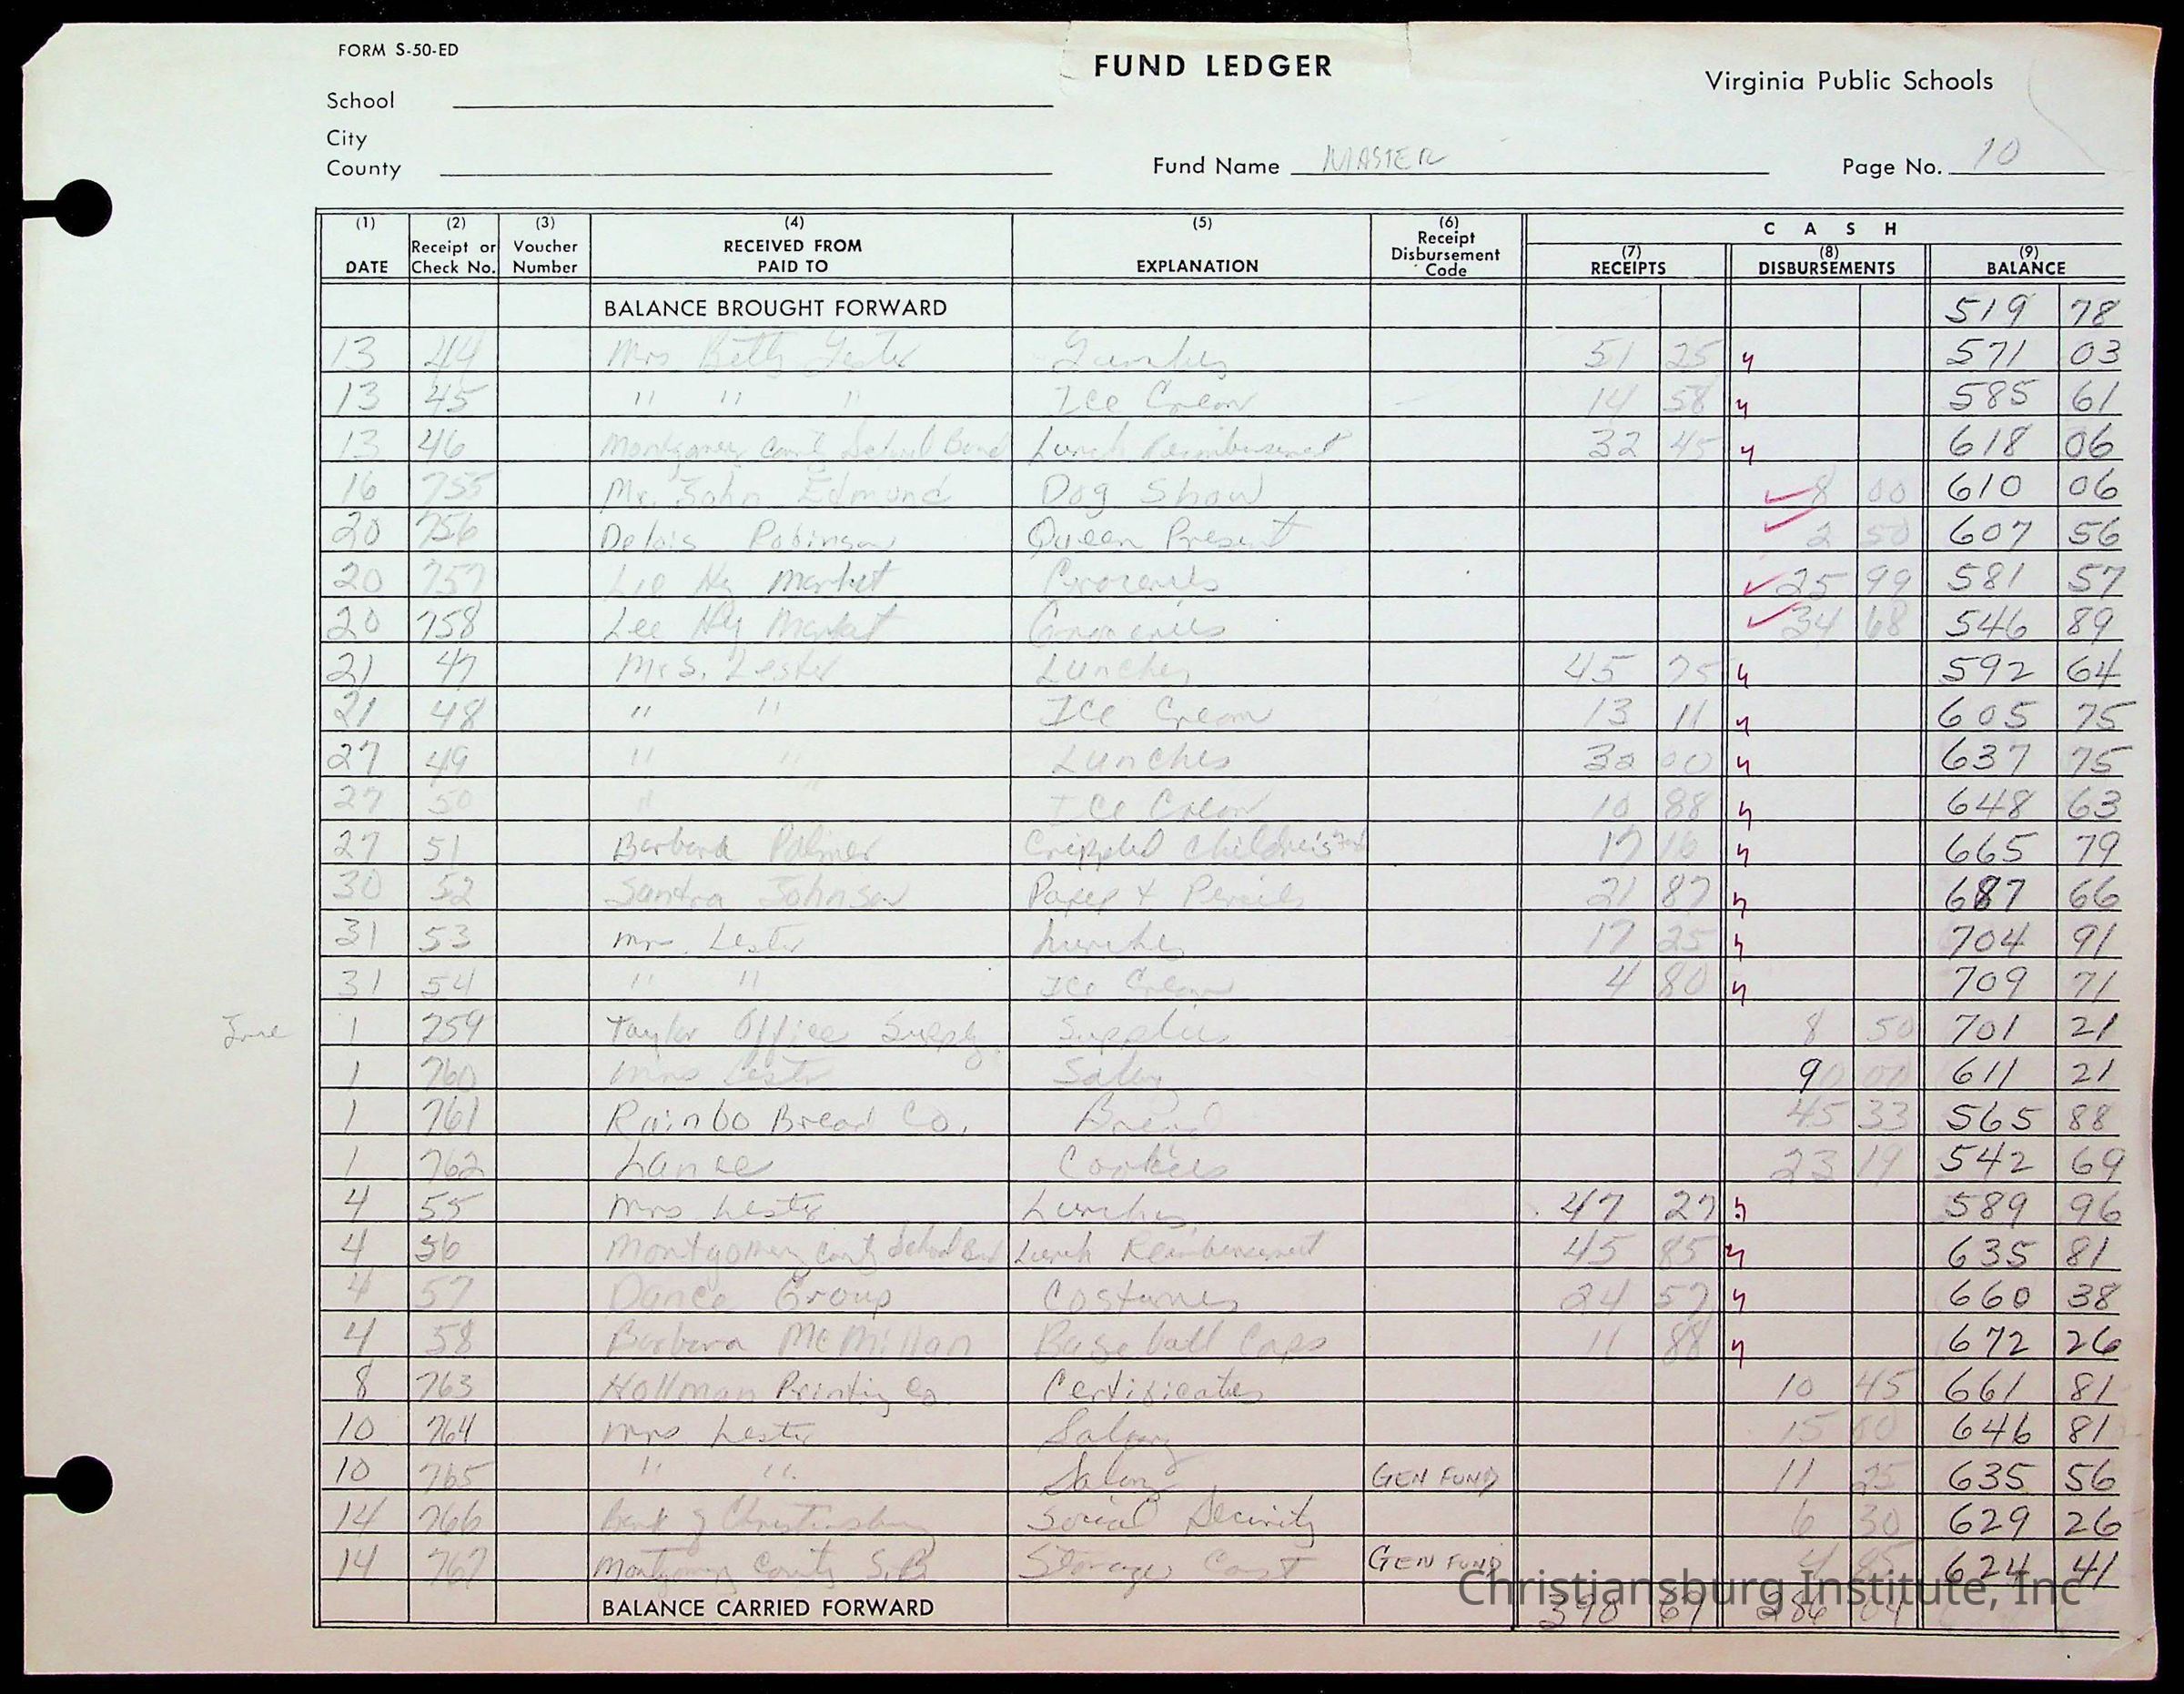 FORM S-50-ED
FUND LEDGER
Virginia Public Schools
School
City
County
Fund Name MASTER
Page No. 10
(1) DATE (2) Receipt or Check No. (3) Voucher Number (4) RECEIVED FROM PAID TO (5) EXPLANATION (6) Receipt Disbursement Code CASH (7) RECEIPTS (8) DISBURSEMENTS (9) BALANCE
BALANCE BROUGHT FORWARD 519 78
13 44 Mrs Betty Lester Lunches 51 25 571 03
13 45 " " " Ice Cream 14 58 585 61
13 46 Montgomery Lunch Reimbursement 32 45 618 06
16 755 Mr. John Edmund Dog Show 8 00 610 06
20 756 Delois Robinson Queen Present 2 50 607 56
20 757 Lee Hy Market Groceries 25 99 581 57
20 758 Lee Hy Market Groceries 34 68 546 89
21 47 Mrs. Lester Lunches 45 75 592 64
21 48 " " Ice Cream 13 11 605 75
27 49 " " Lunches 32 00 637 75
27 50 " " Ice Cream 10 88 648 63
27 51 Barbara Palmer Crippled Children's 17 16 665 79
30 52 Sandra Johnson Paper + Pencils 21 87 687 66
31 53 Mrs. Lester Lunches 17 25 704 91
31 54 " " Ice Cream 4 80 709 71
June 1 759 Taylor Office Supply Supplies 8 50 701 21
1 760 Mrs Lester Salary 90 00 611 21
1 761 Rainbo Bread Co. Bread 45 33 565 88
1 762 Lance Cookies 23 19 542 69
4 55 Mrs Lester Lunches 47 27 589 96
4 56 Montgomery County School Bord Lunch Reimbursement 45 85 635 81
4 57 Dance Group Costumes 24 57 660 38
4 58 Barbara McMillan Baseball Caps 11 88 672 26
8 763 Hollman Printing Co. Certificates 10 45 661 81
10 764 Mrs Lester Salary 15 00 646 81
10 765 " " Salary GEN FUND 11 25 635 56
14 766 Bank of Christiansburg Social Security 6 30 629 26
14 767 Montgomery County S.B. Storage Cost GEN FUND 4 85 624 41
BALANCE CARRIED FORWARD 390 67 286 04
Christiansburg Institute, Inc